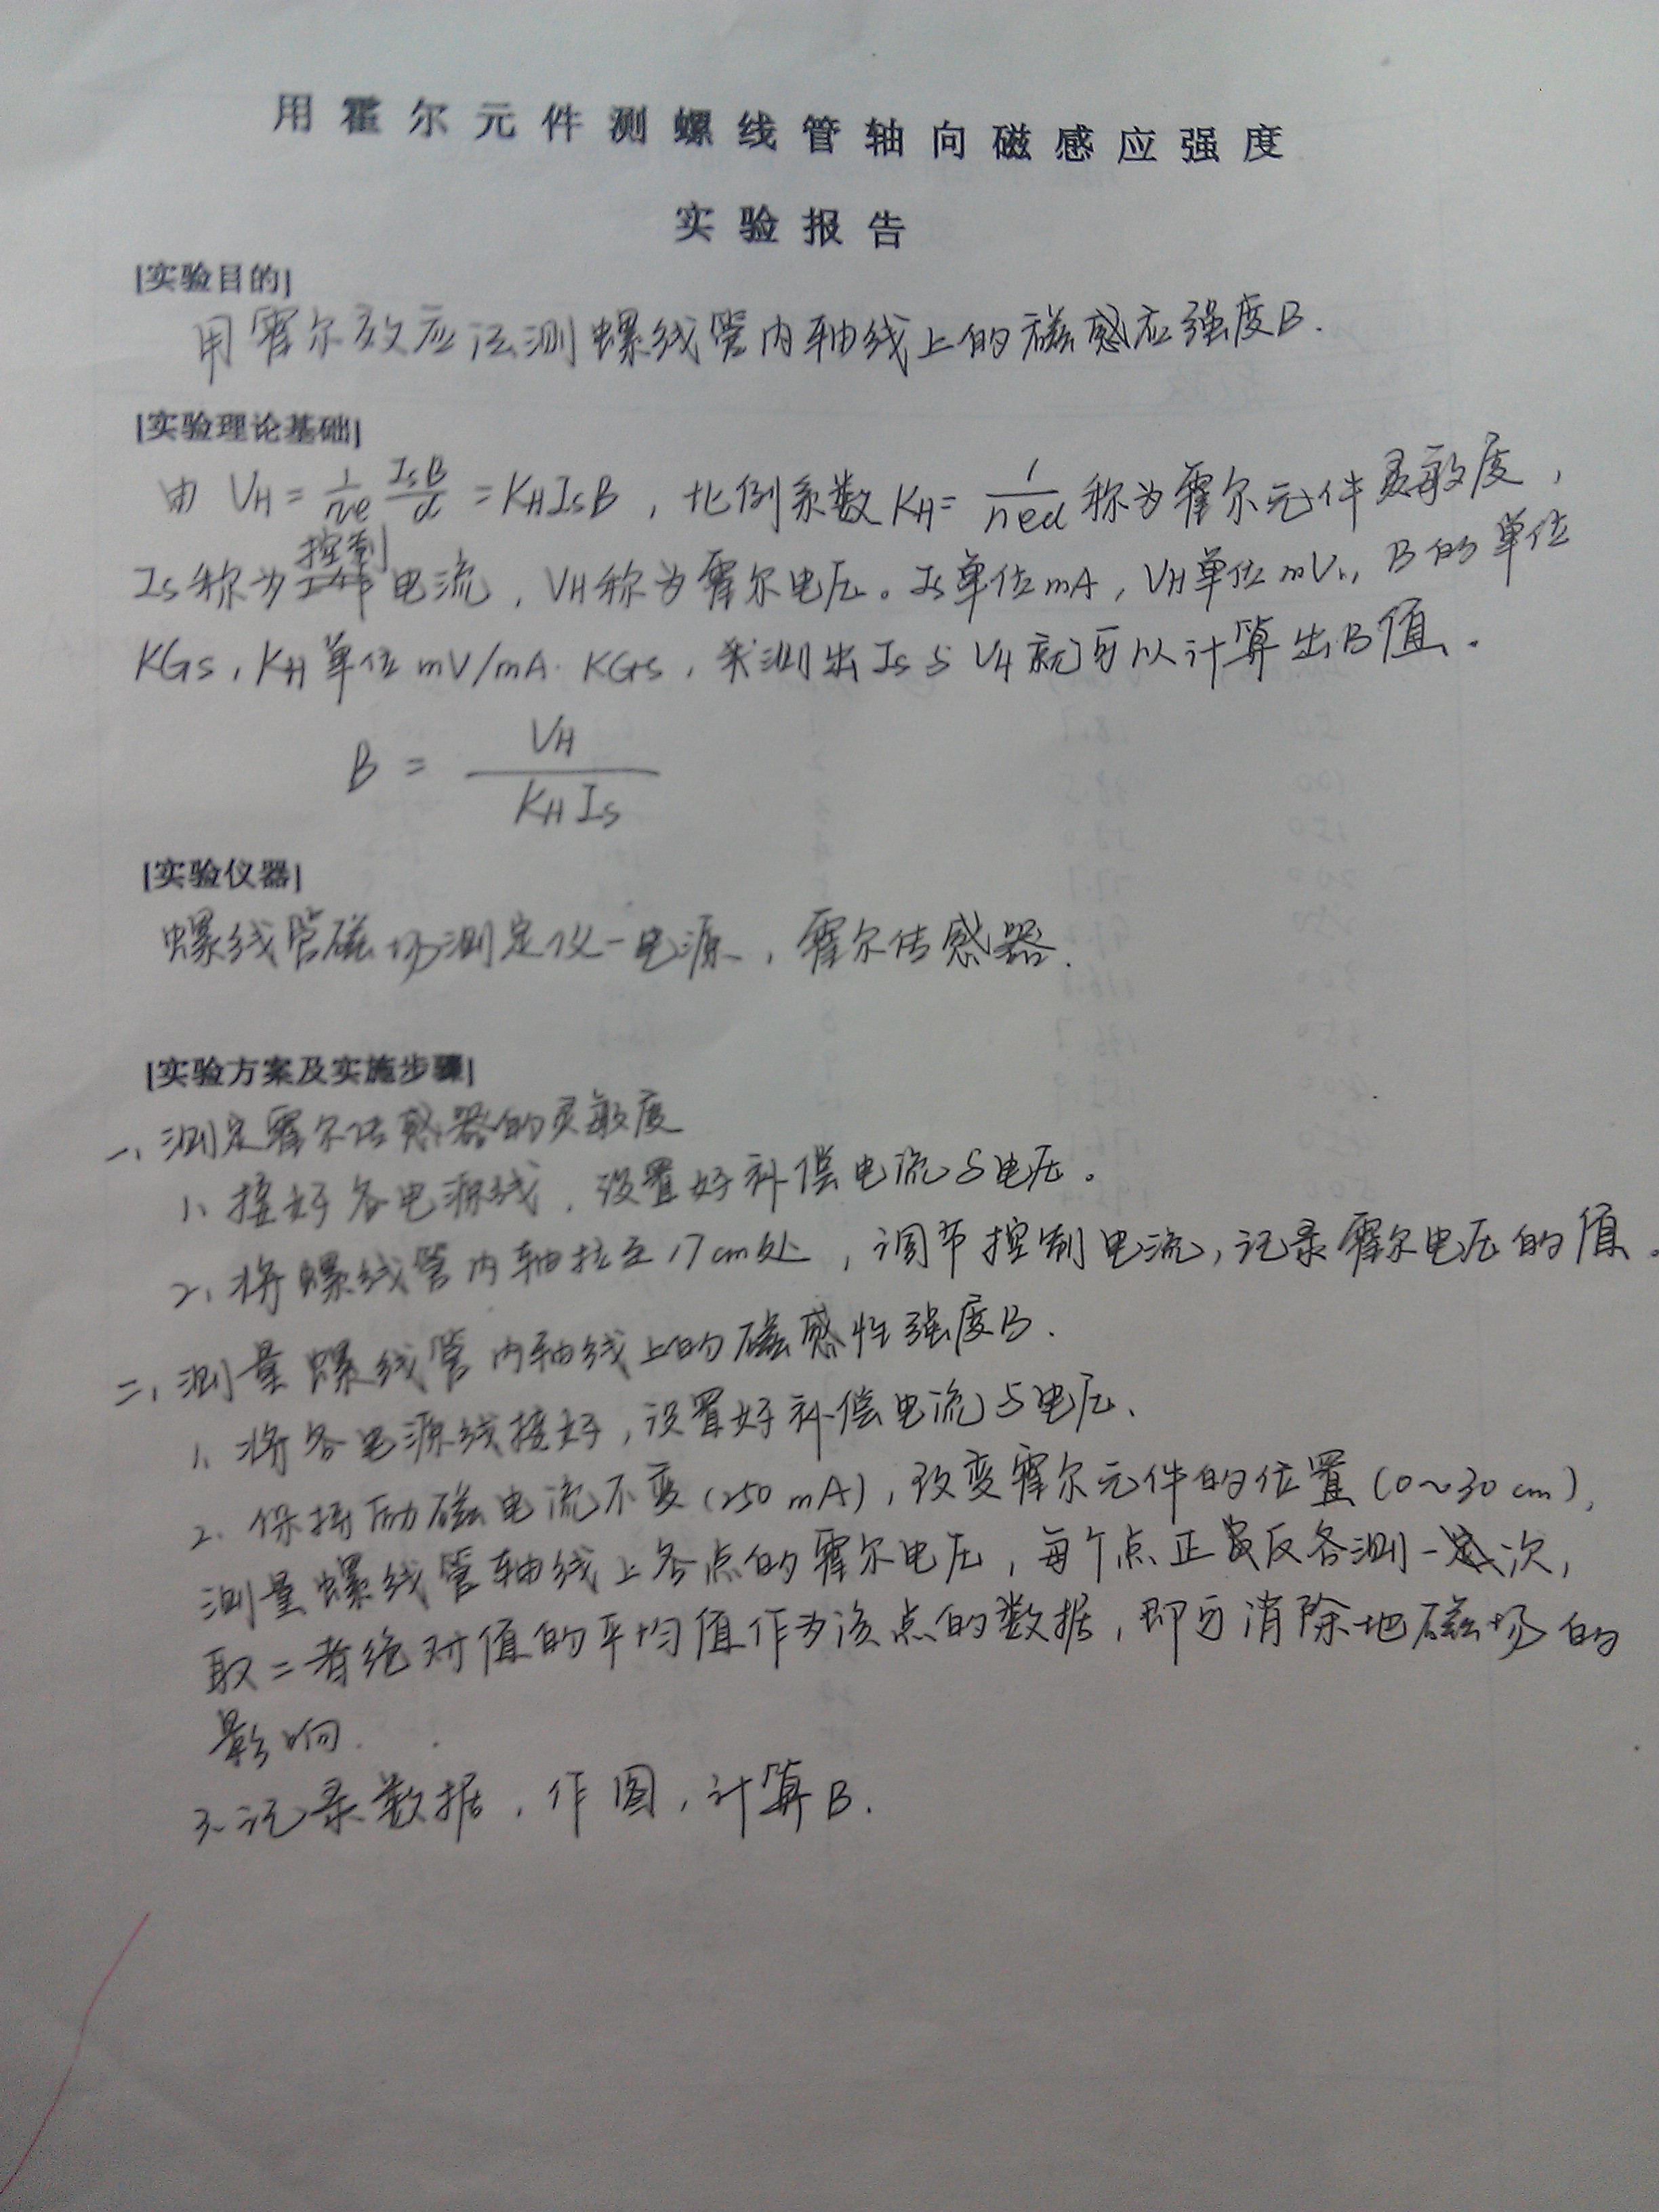 用霍尔元件测螺线管轴向磁感应强度
实验报告
[实验目的]
用霍尔效应法测螺线管内轴线上的磁感应强度B.
[实验理论基础]
由 VH = 1/ne IsB/d = KHIsB , 比例系数 KH = 1/ned 称为霍尔元件灵敏度,
控制
Is称为 电流, VH称为霍尔电压。Is单位mA, VH单位mV, B的单位
KGs, KH单位 mV/mA·KGs, 测出Is与VH就可以计算出B值.
B = VH / KHIs
[实验仪器]
螺线管磁场测定仪一电源, 霍尔传感器.
[实验方案及实施步骤]
一、测定霍尔传感器的灵敏度
1、接好各电源线, 设置好补偿电流与电压。
2、将螺线管内轴拉至17cm处, 调节控制电流, 记录霍尔电压的值。
二、测量螺线管内轴线上的磁感性强度B.
1、将各电源线接好, 设置好补偿电流与电压、
2、保持励磁电流不变(250mA), 改变霍尔元件的位置(0~30cm),
测量螺线管轴线上各点的霍尔电压, 每个点正反各测一次,
取二者绝对值的平均值作为该点的数据, 即可消除地磁场的
影响.
3、记录数据, 作图, 计算B.